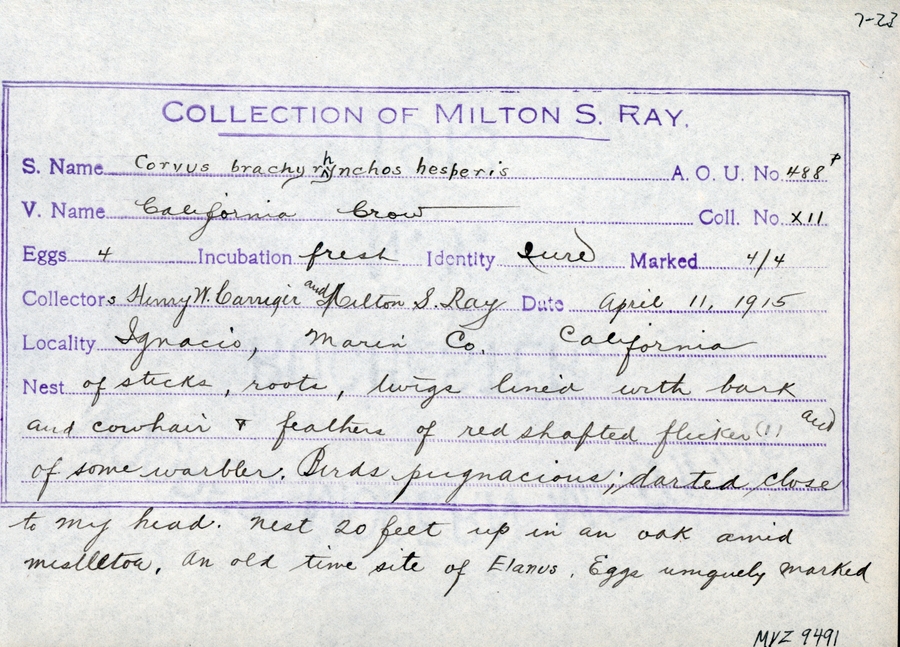 7-23
COLLECTION OF MILTON S. RAY.
S. Name Corvus brachyrhynchos hesperis A. O. U. No. 488
V. Name California Crow Coll. No. XII
Eggs 4 Incubation fresh Identity sure Marked 4/4
Collectors Henry W. Carriger and Milton S. Ray Date April 11, 1915
Locality Ignacio, Marin Co. California
Nest of sticks, roots, twigs lined with bark
and cowhair & feathers of red shafted flicker (!) and
of some warbler. Birds pugnacious; darted close
to my head. Nest 20 feet up in an oak amid
mistletoe. An old time site of Elanus. Eggs uniquely marked
MVZ 9491